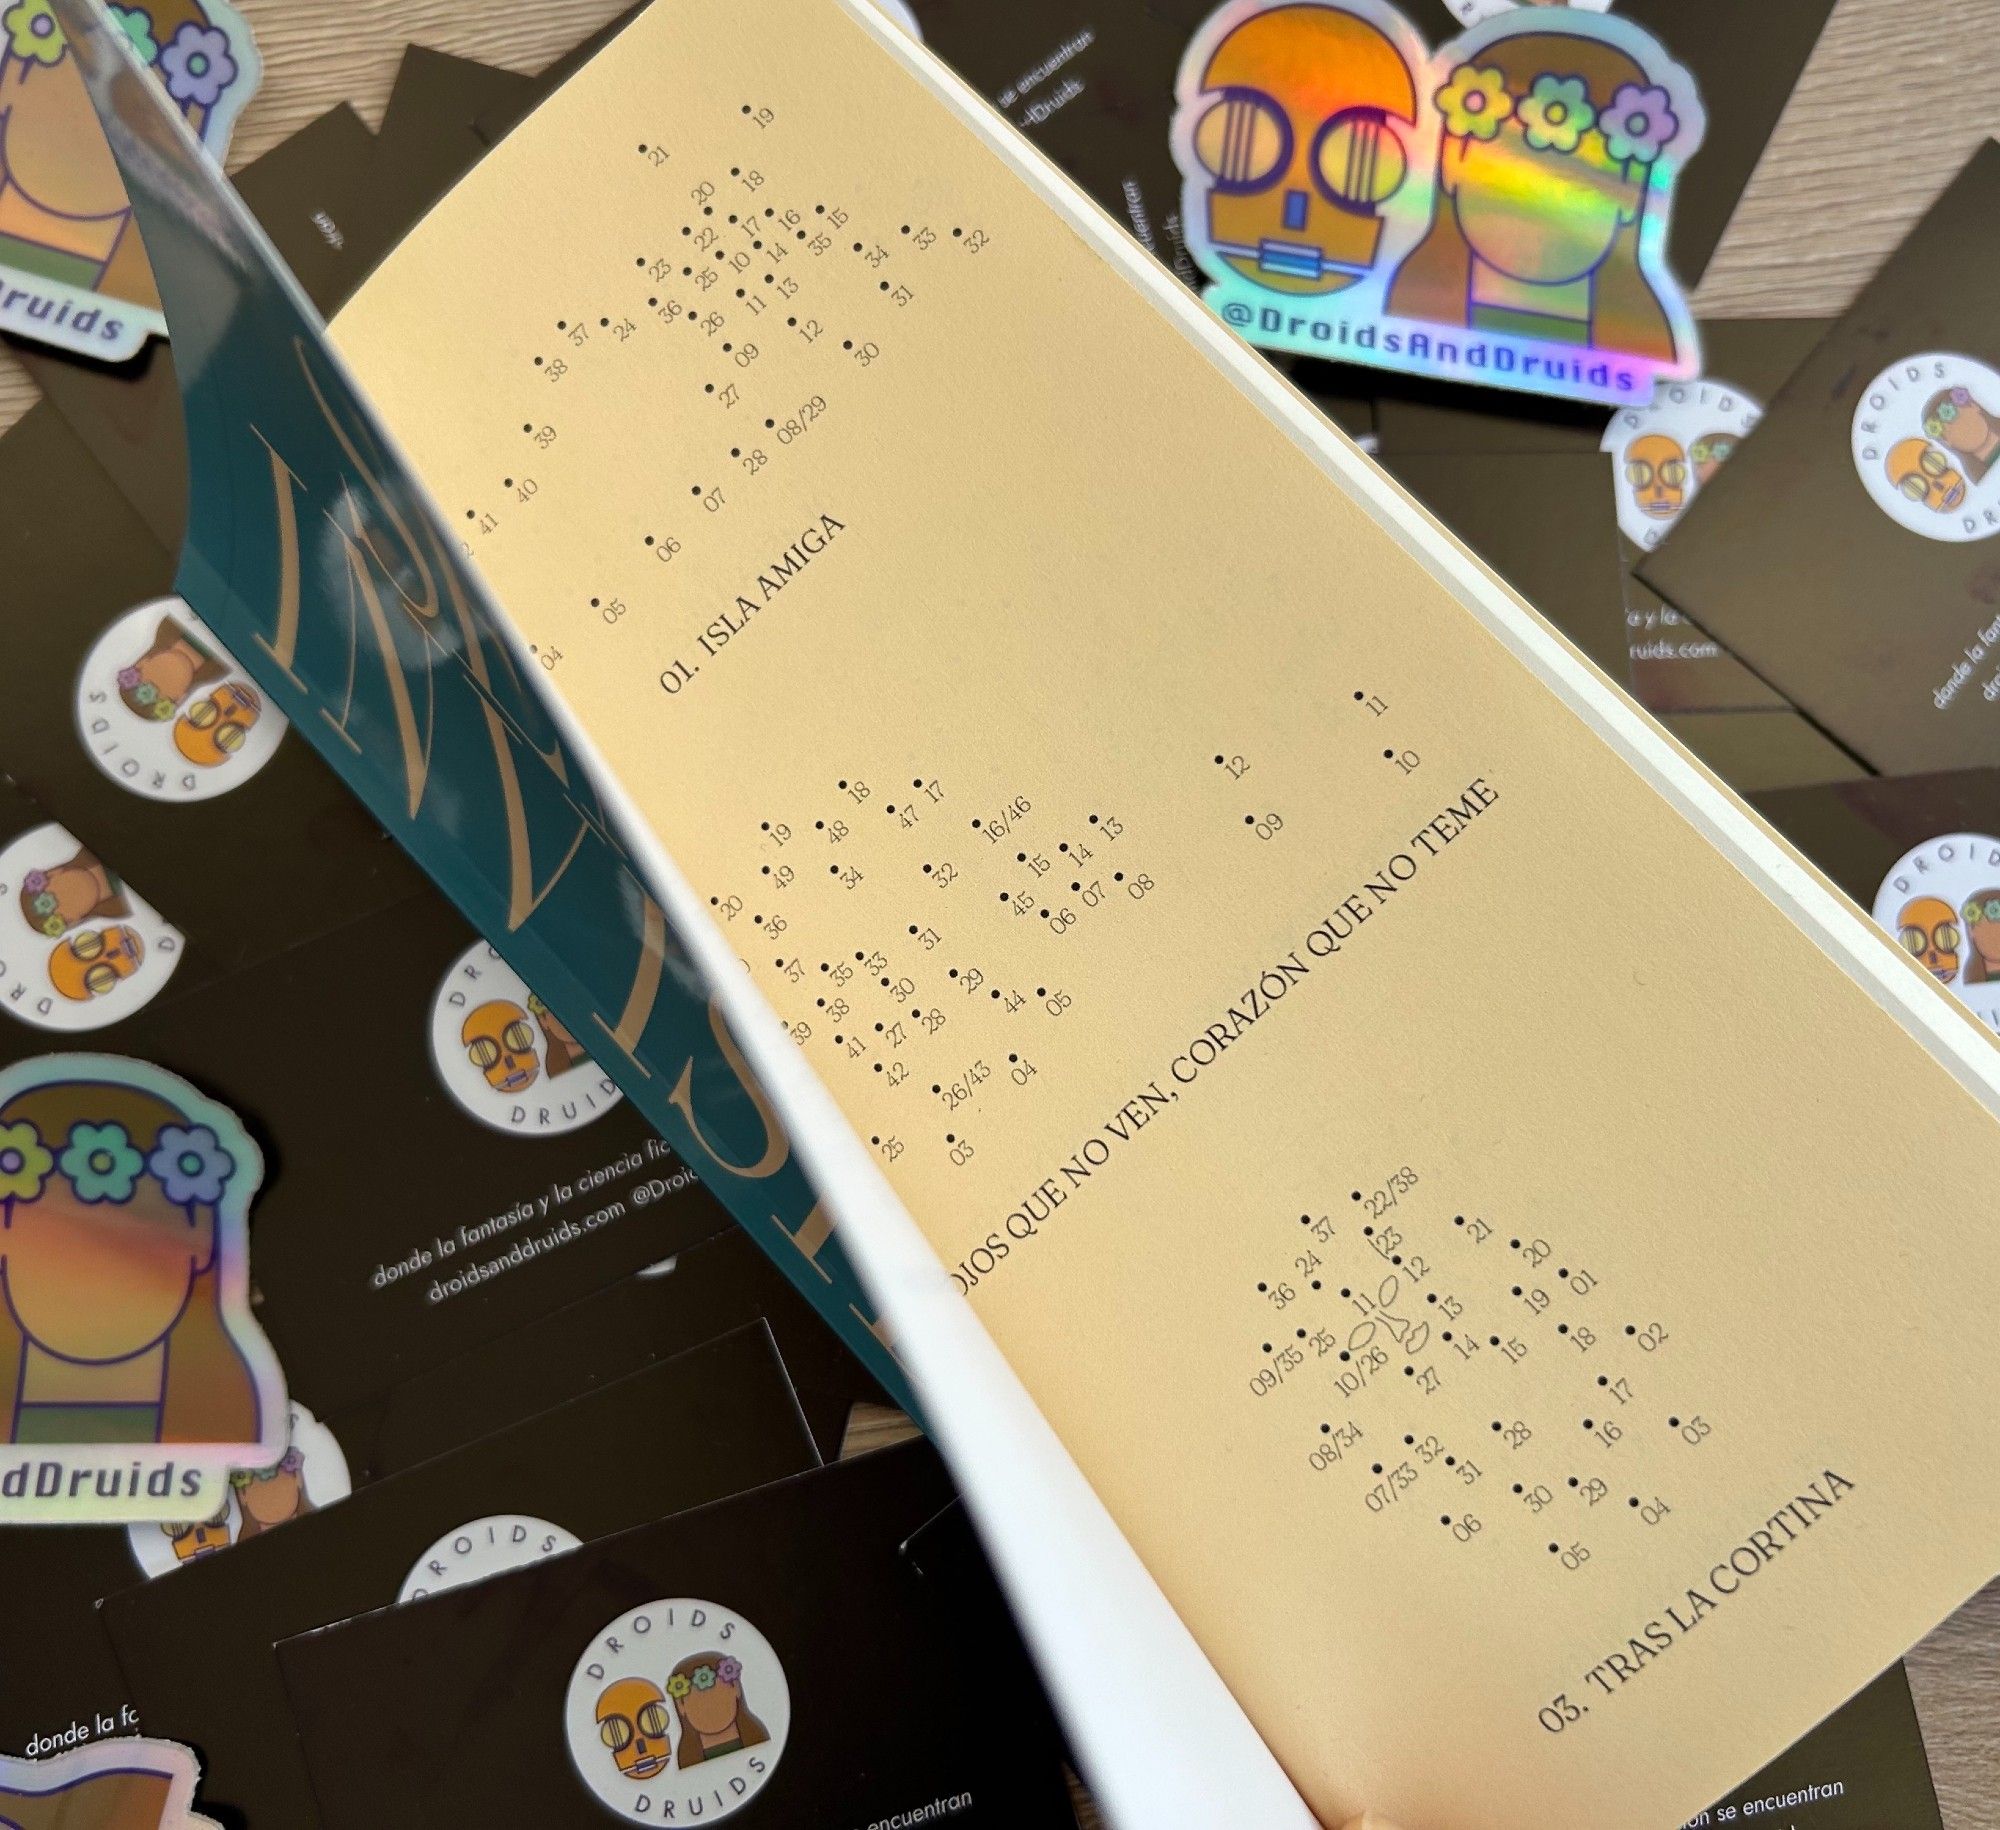 19
21
18
20
17
16
15
22
33
32
35
34
14
10
23
25
13
31
11
36
26
12
24
37
09
30
38
27
08/29
39
28
40
07
41
06
05
04
01. ISLA AMIGA
11
12
10
18
17
47
16/46
13
09
19
48
15
14
49
34
32
08
07
45
06
20
36
31
37
35
33
29
30
44
05
38
39
28
27
41
42
04
26/43
25
03
OJOS QUE NO VEN, CORAZÓN QUE NO TEME
22/38
37
23
21
20
24
12
01
36
11
13
19
25
14
15
18
02
09/35
10/26
27
17
08/34
32
28
16
03
07/33
31
30
29
04
06
05
03. TRAS LA CORTINA
@DroidsAndDruids
se encuentran
donde la fantasía y la ciencia fic
droidsanddruids.com @Droid
DROIDS
DRUIDS
dDruids
donde la fa
encuentran
ruids.com
se encuentran